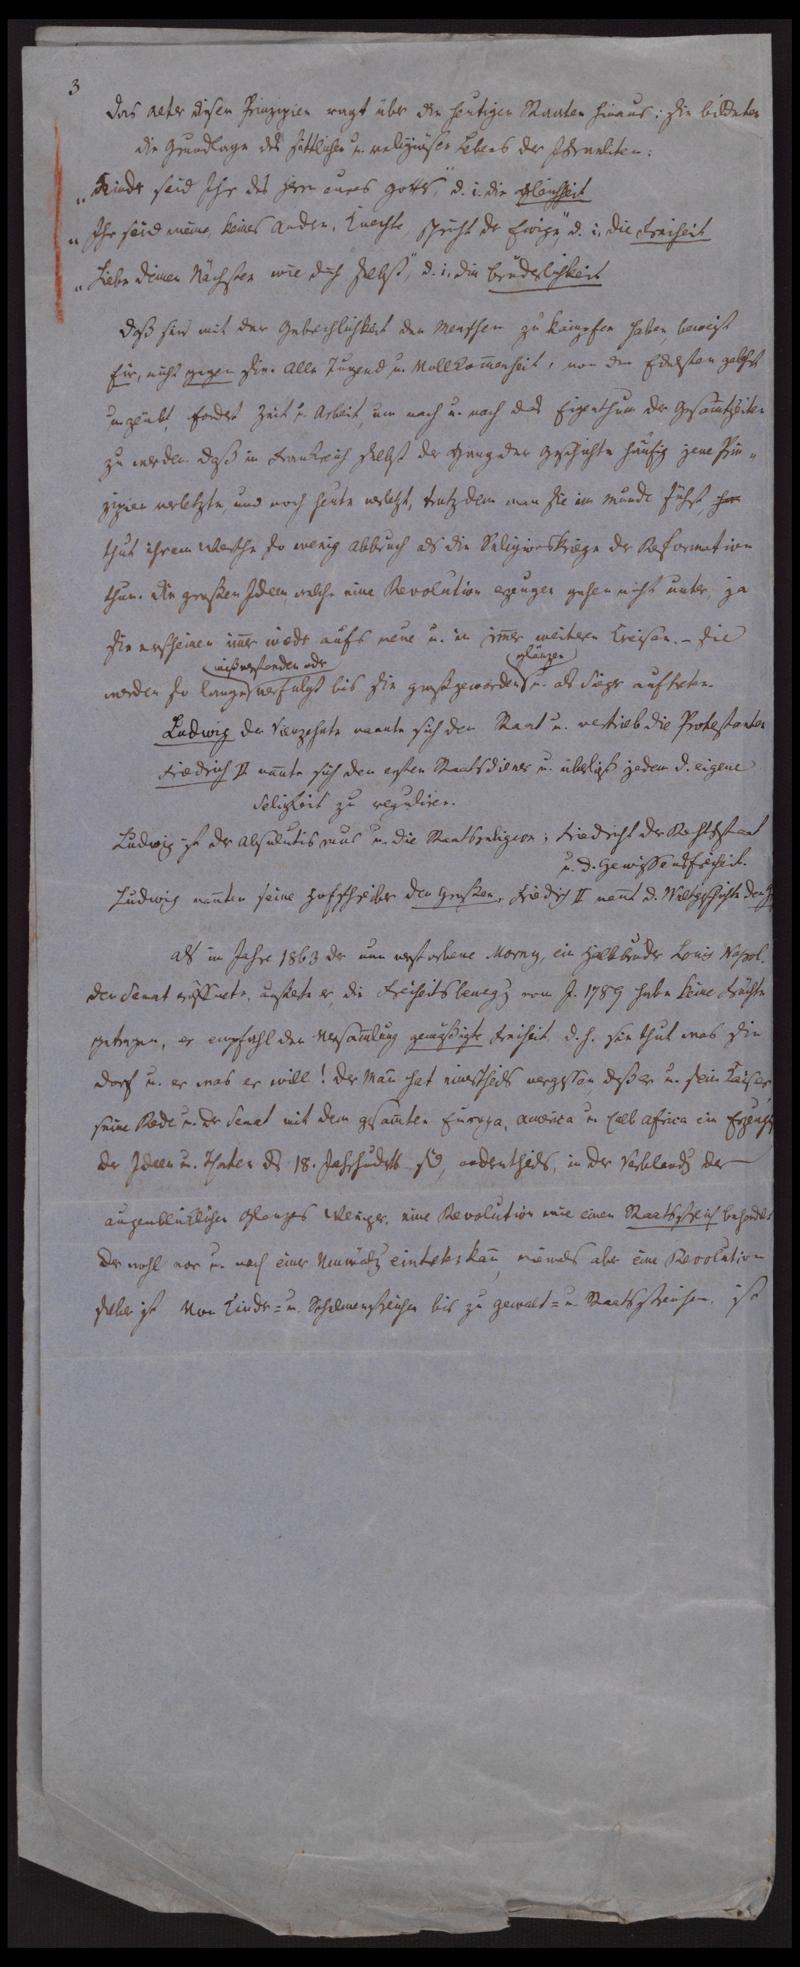 3
Das Alter dieser Prinzipien ragt über die heutigen Staaten hinaus; sie bildeten
die Grundlage des sittlichen u. religiösen Lebens der Israeliten:
„Kinder seid Ihr des Herrn eures Gottes," d. i. die Gleichheit
„Ihr seid meine, keines Andern, Knechte, spricht der Ewige", d. i. die Freiheit
„Liebe deinen Nächsten wie dich selbst", d. i. die Brüderlichkeit
Daß sie mit der Gebrechlichkeit der Menschen zu kämpfen haben, beweist
für, nicht gegen sie. Alle Tugend u. Vollkommenheit, von den Edelsten gelehrt
u. geübt, fordert Zeit u. Arbeit, um nach u. nach das Eigenthum der Gesammtheit
zu werden. Daß in Frankreich selbst der Gang der Geschichte häufig jene Prin-
zipien verletzte, und noch heute verletzt, trotzdem man sie im Munde führt,
thut ihrem Werthe so wenig Abbruch als die Religionskriege der Reformation
thun. Die großen Ideen, welche eine Revolution erzeugen gehen nicht unter, ja
sie erscheinen immer wieder aufs neue u. in immer weiteren Kreisen. – Sie
mißverstanden oder glänzen
werden so lange verfolgt bis sie groß geworden u. als Sieger auftreten.
Ludwig der Vierzehnte nannte sich den Staat u. vertrieb die Protestanten
Friedrich II nannte sich den ersten Staatsdiener u. überließ jedem d. eigene
Seligkeit zu reguliren.
Ludwig ist der Absolutismus u. die Staatsreligion; Friedrich der Rechtsstaat
u. d. Gewissensfreiheit.
Ludwig nannten seine Hofschreiber den Großen, Friedrich II nennt d. Weltgeschichte den
Als im Jahre 1863 der nun verstorbene Morny, ein Halbbruder Louis Napol.
den Senat eröffnete, äußerte er, die Freiheitsbewegg vom J. 1789 habe keine Früchte
getragen, er empfahl der Versammlung gemäßigte Freiheit d. h. sie thut was sie
darf u. er was er will! Der Mann hat einestheils vergessen daß er u. sein Kaiser
seine Rede u. der Senat mit dem gesammten Europa, America u. halb Africa ein
der Ideen u. Thaten des 18. Jahrhunderts sind, anderntheils, in der Verblendg des
augenblicklichen Glanzes Weniger, eine Revolution wie einen Staatsstreich behandelt
der wohl vor u. nach einer Umwälzg eintreten kann, niemals aber eine Revolution
selber ist. Von Kinder- u. Schelmenstreichen bis zu Gewalt- u. Staatsstreichen, ist